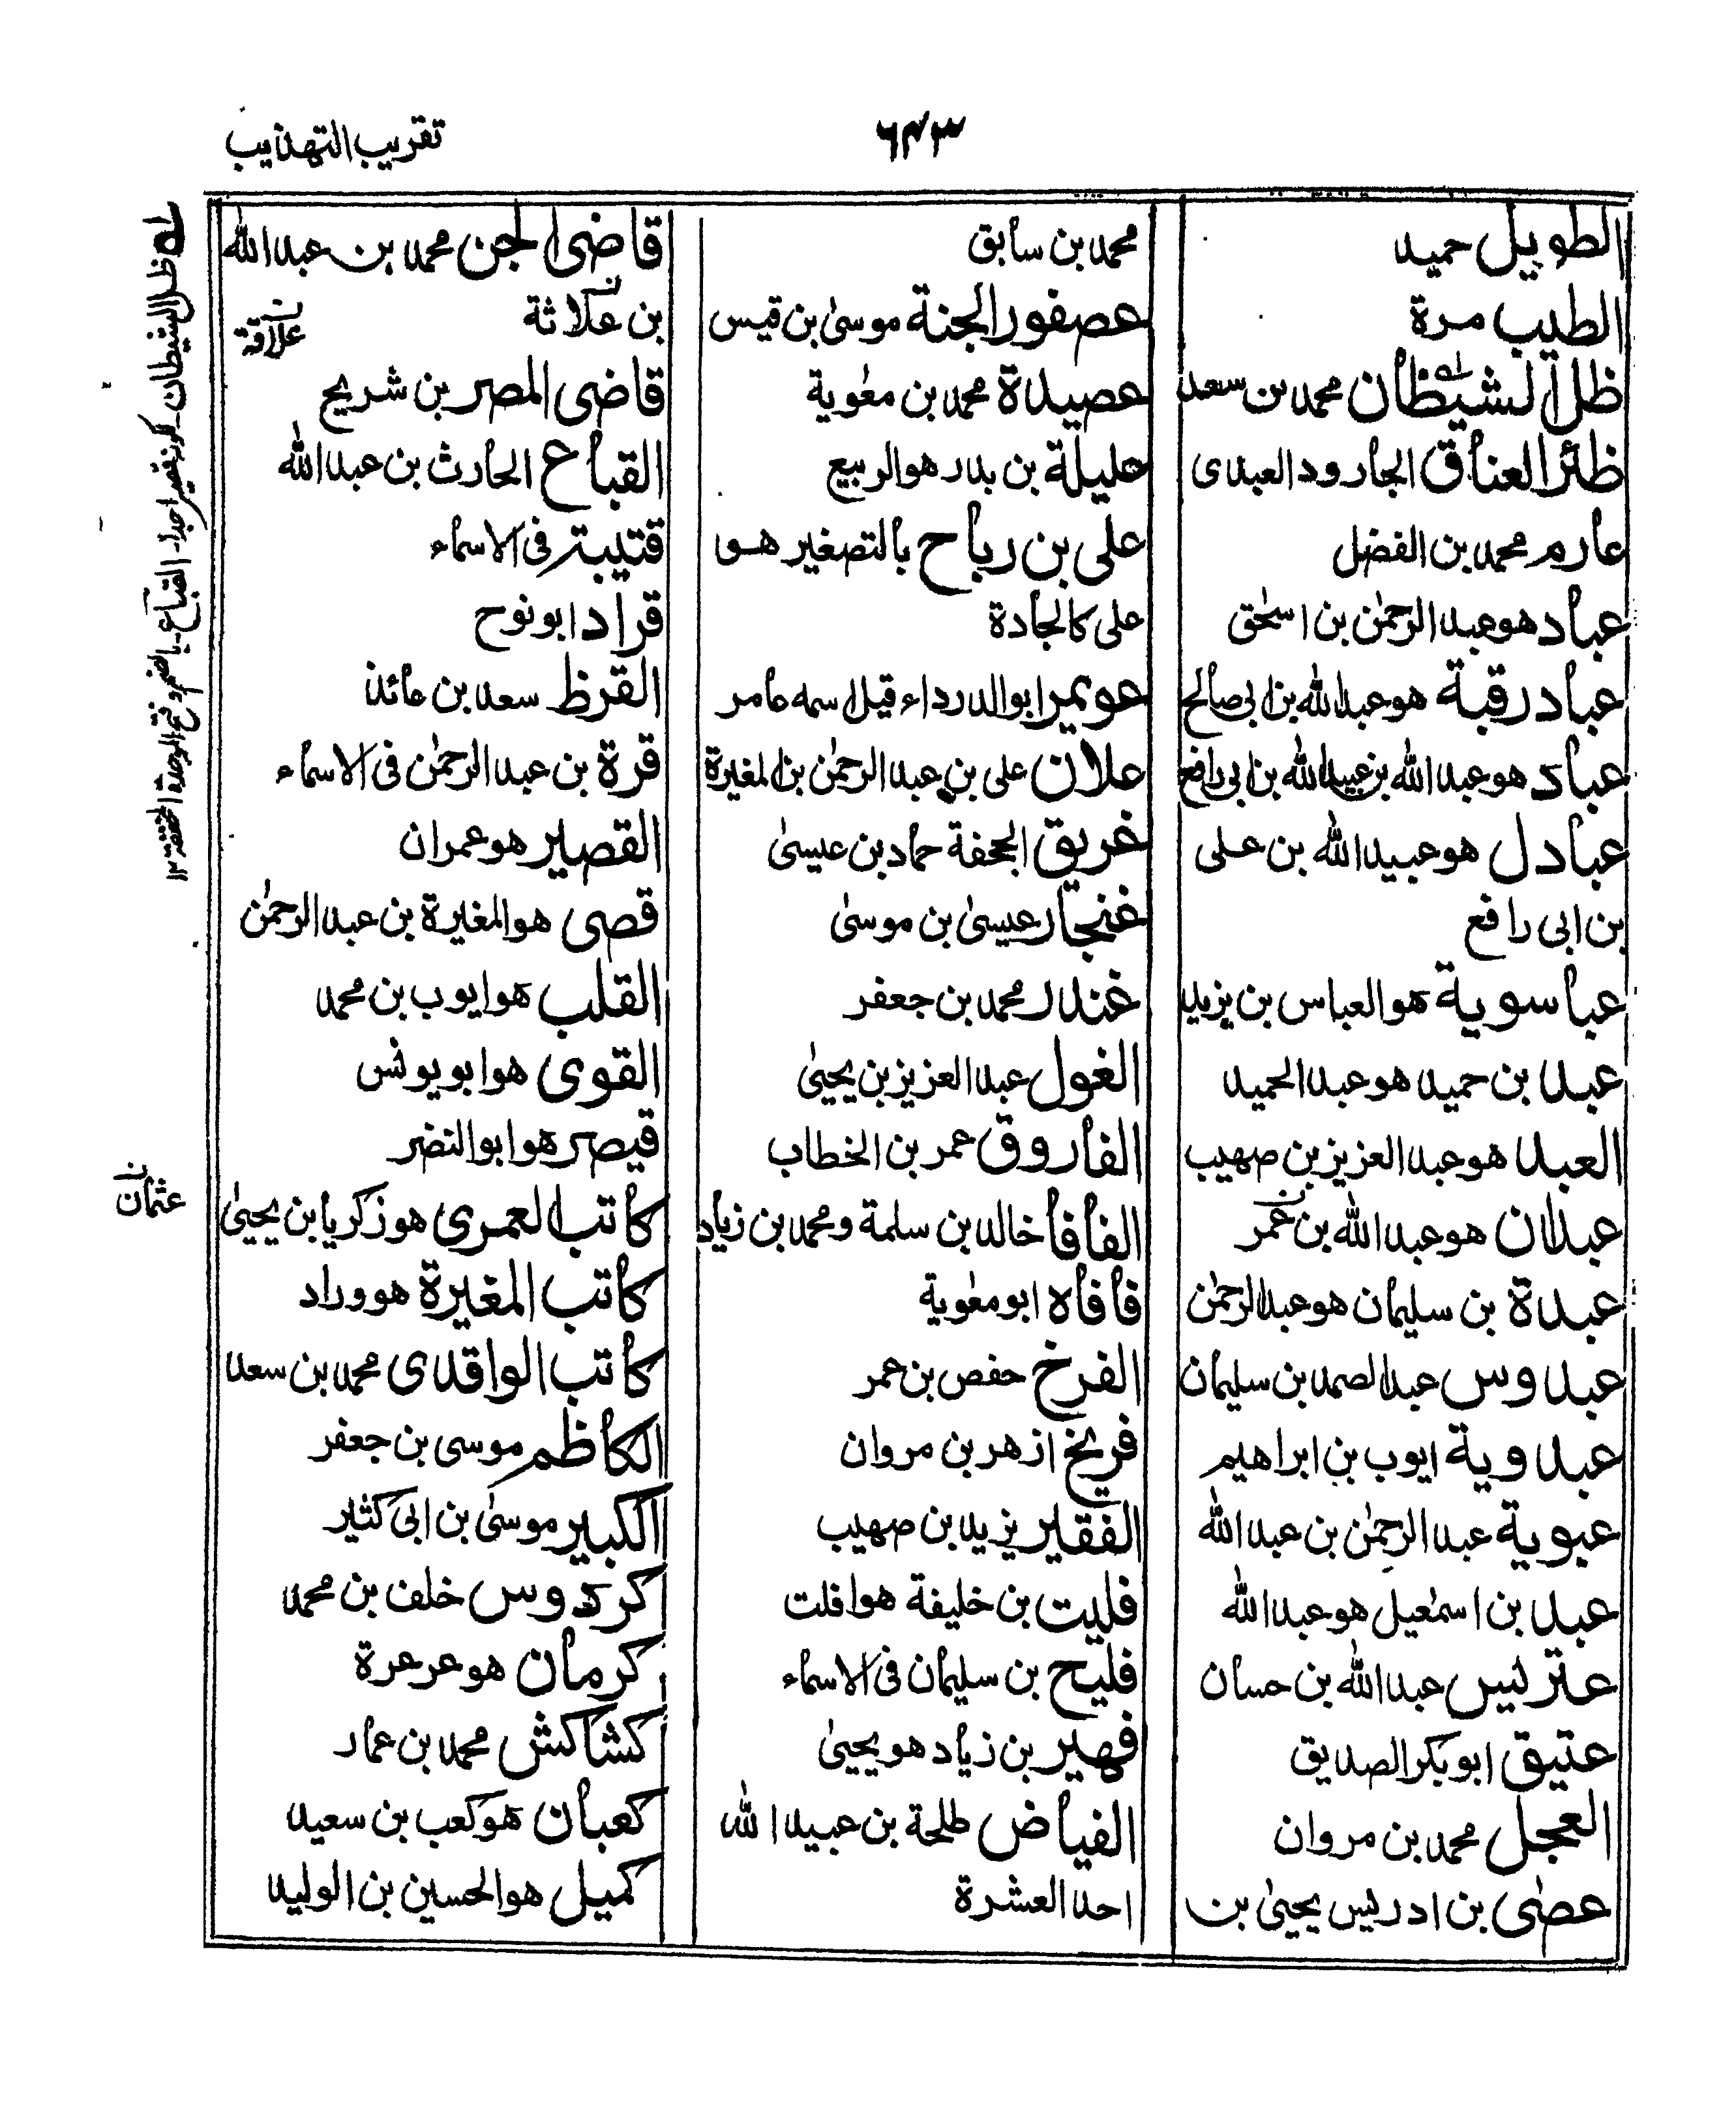 ٦٤٣
تقريب التهذيب
الطويل حميد
الطيب مرة
ظل الشيظان محمد بن سعد
ظئر العناق الجارود العبدى
عارم محمد بن الفضل
عباد هو عبد الرحمٰن بن اسحٰق
عباد رقبة هو عبد الله بن ابى صالح
عباد هو عبد الله بن عبيد الله بن ابى رافع
عبادل هو عبيد الله بن على
بن ابى رافع
عباسوية هو العباس بن يزيد
عبد بن حميد هو عبد الحميد
العبد هو عبد العزيز بن صهيب
عبدان هو عبد الله بن عمر
عبدة بن سليمان هو عبد الرحمٰن
عبدوس عبد الصمد بن سليمان
عبدوية ايوب بن ابراهيم
عبوية عبد الرحمٰن بن عبد الله
عبد بن اسمٰعيل هو عبد الله
عتريس عبد الله بن حسان
عتيق ابو بكر الصديق
العجل محمد بن مروان
عصٰى بن ادريس يحيىٰ بن
محمد بن سابق
عصفور الجنة موسىٰ بن قيس
عصيدة محمد بن معٰوية
عليلة بن بدر هو الربيع
على بن رباح بالتصغير هو
على كالجادة
عويمر ابو الدرداء قيل اسمه عامر
علان على بن عبد الرحمٰن بن المغيرة
غريق الجحفة حماد بن عيسىٰ
غنجار عيسىٰ بن موسىٰ
غندر محمد بن جعفر
الغول عبد العزيز بن يحيىٰ
الفاروق عمر بن الخطاب
الفأفأ خالد بن سلمة ومحمد بن زياد
فأفأه ابو معٰوية
الفرخ حفص بن عمر
فريخ ازهر بن مروان
الفقير يزيد بن صهيب
فليت بن خليفة هو افلت
فليح بن سليمان فى الاسماء
فهير بن زياد هو يحيىٰ
الفياض طلحة بن عبيد الله
احد العشرة
قاضى الجن محمد بن عبد الله
بن علاثة
علاقة
قاضى المصر بن شريح
القباع الحارث بن عبد الله
قتيبة فى الاسماء
قراد ابو نوح
القرظ سعد بن عائذ
قرة بن عبد الرحمٰن فى الاسماء
القصير هو عمران
قصى هو المغيرة بن عبد الرحمٰن
القلب هو ايوب بن محمد
القوى هو ابو يونس
قيصر هو ابو النضر
كاتب العمرى هو زكريا بن يحيىٰ
كاتب المغيرة هو وراد
كاتب الواقدى محمد بن سعد
الكاظم موسى بن جعفر
الكبير موسىٰ بن ابى كثير
كردوس خلف بن محمد
كرمان هو عرعرة
كشاكش محمد بن عمار
كعبان هو كعب بن سعيد
كميل هو الحسين بن الوليد
له ظل الشيطان ـ لكونه قصيرا جدا ـ القباع ـ بالضم وفتح الموحدة المخففة ١٢
عثمان